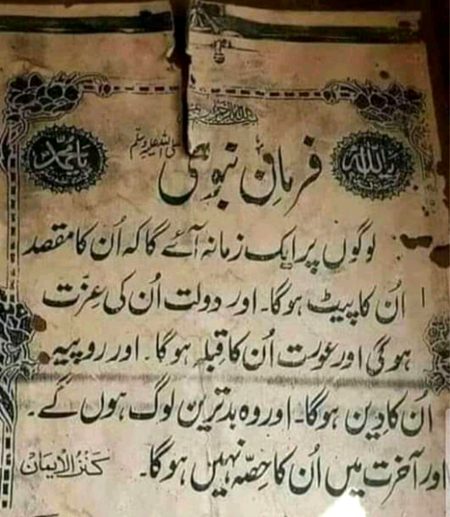 یا اللہ
یا محمد
فرمانِ نبوی صلی اللہ علیہ وسلم
لوگوں پر ایک زمانہ آئے گا کہ اُن کا مقصد
اُن کا پیٹ ہوگا۔ اور دولت اُن کی عزّت
ہوگی اور عورت اُن کا قبلہ ہوگا۔ اور روپیہ
اُن کا دِین ہوگا۔ اور وہ بدترین لوگ ہوں گے۔
اور آخرت میں اُن کا حِصّہ نہیں ہوگا۔
کنزُ الایمان